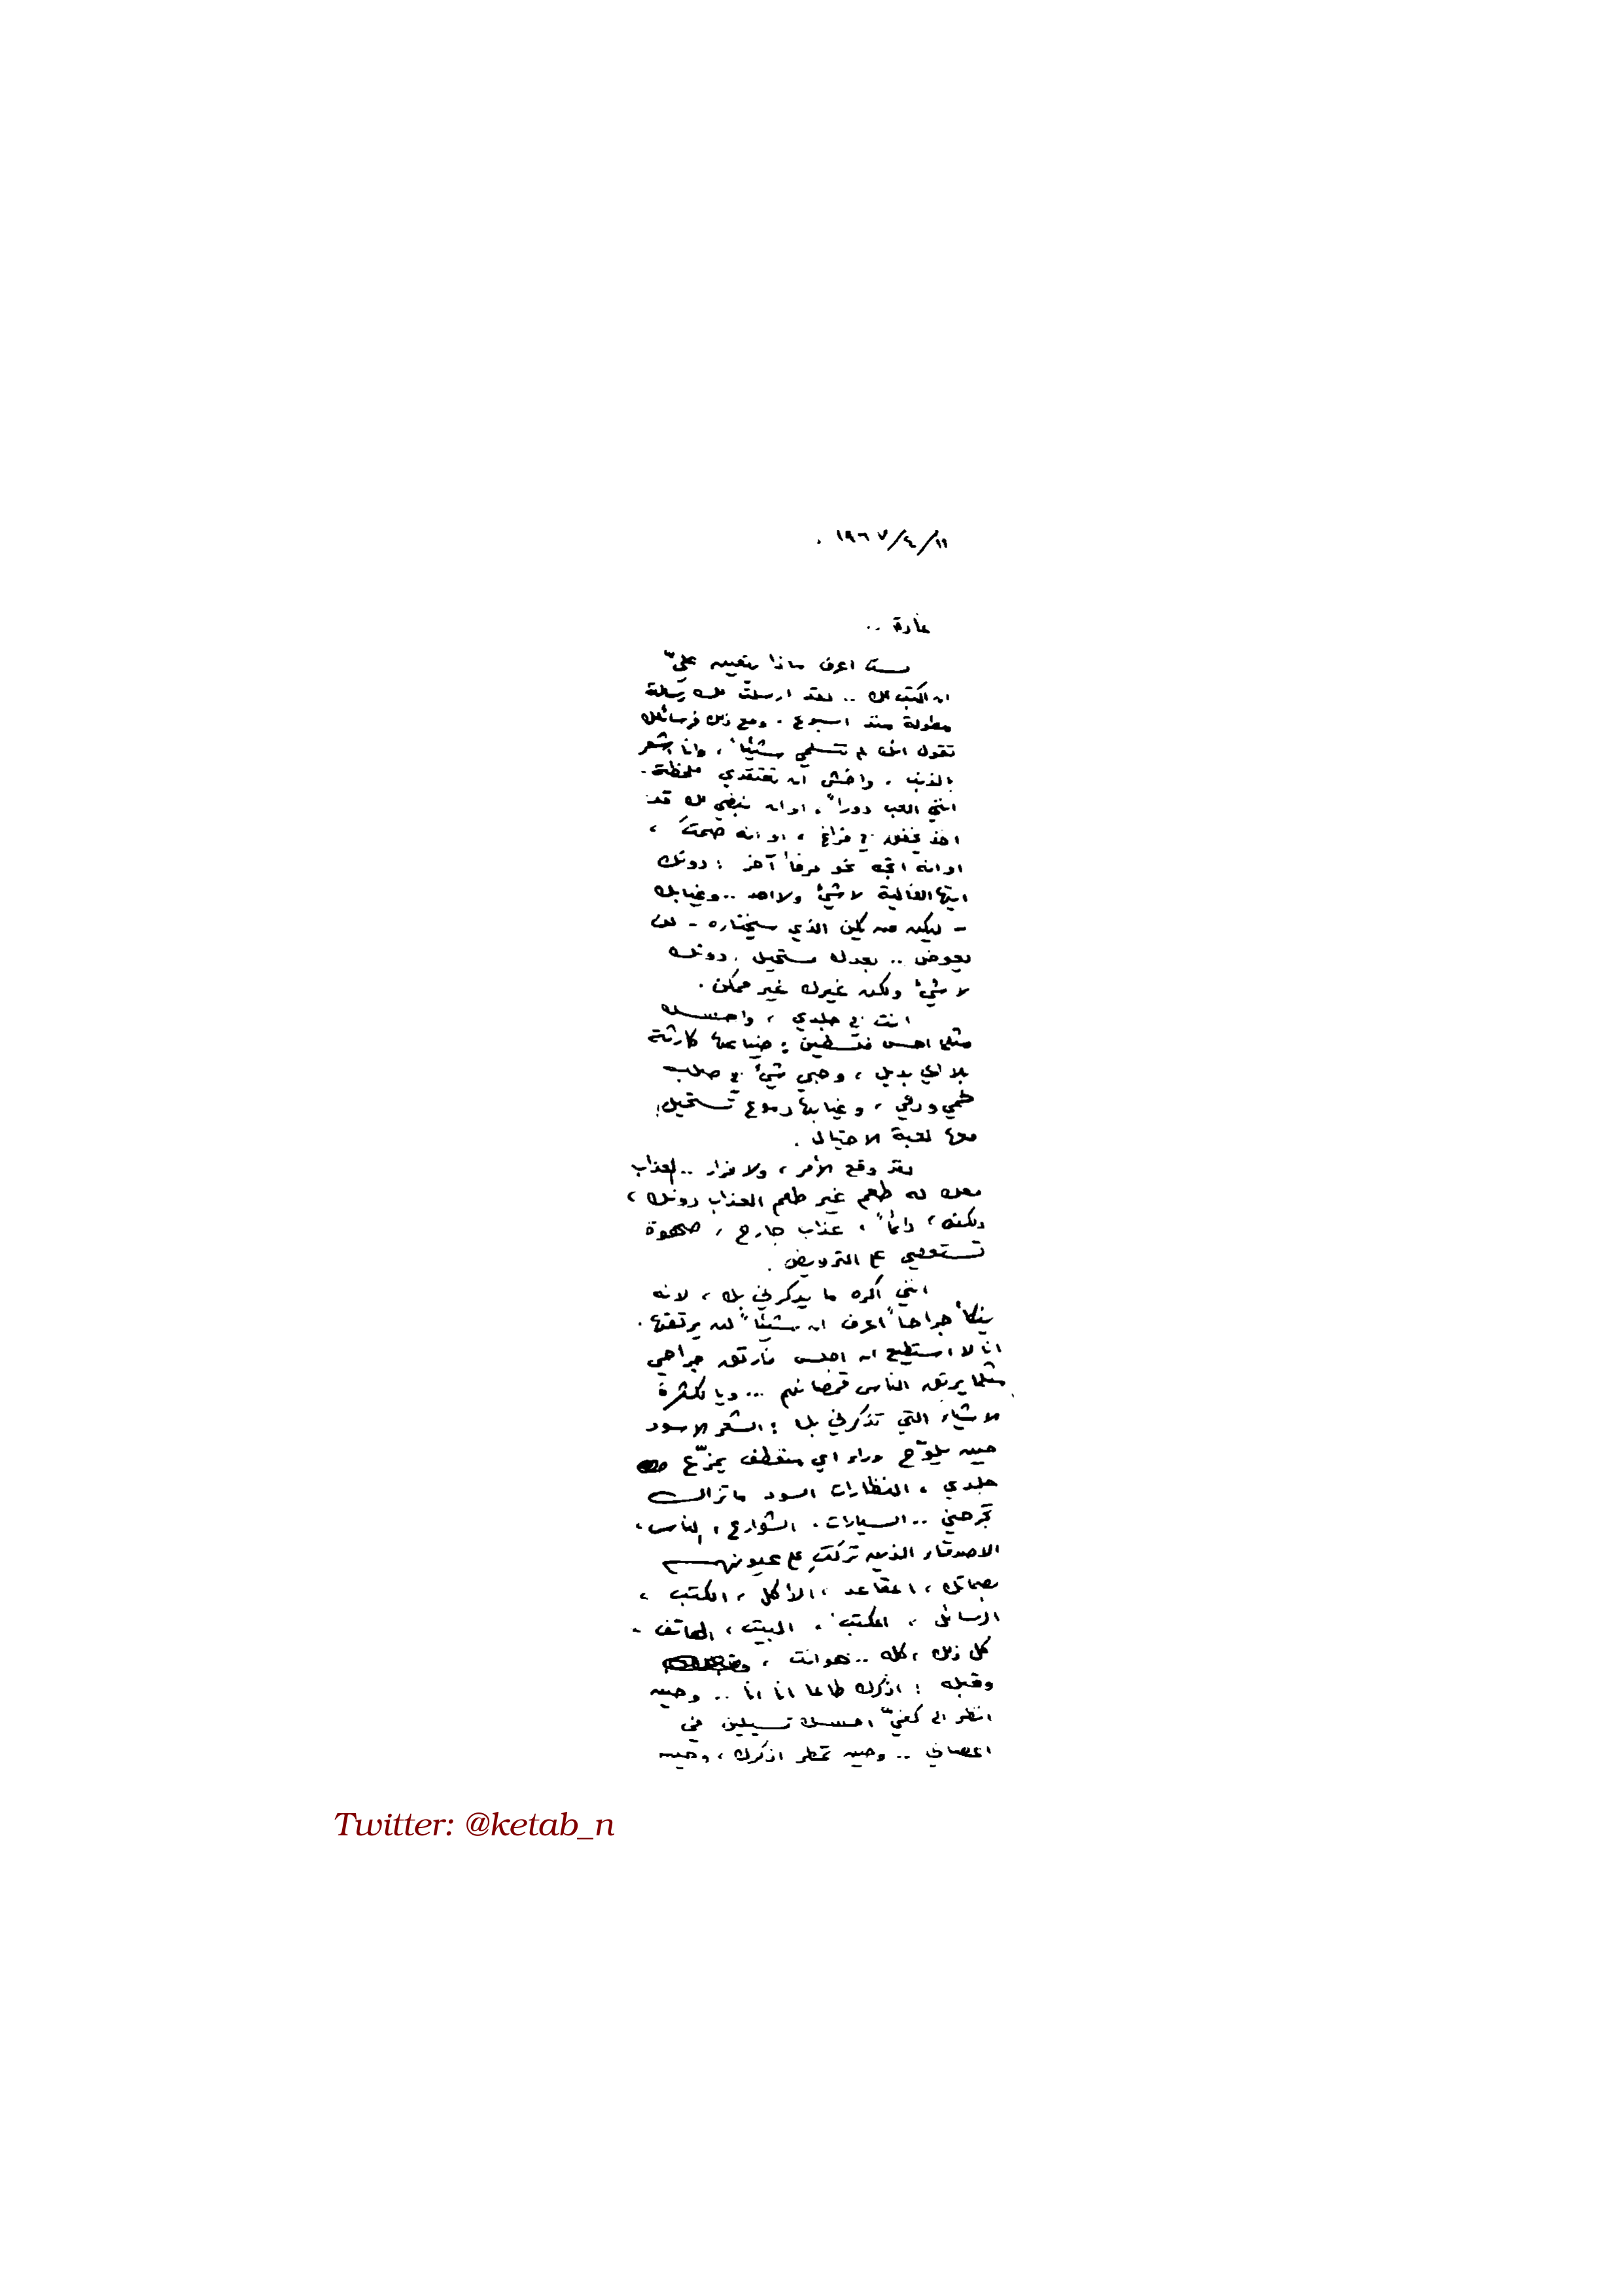 ١١/٤/١٩٦٧ .
غادة ..
لست اعرف ماذا يتعين عليّ
ان اكتب لك .. لقد ارسلت لك رسالة
مطولة منذ اسبوع ، ومع ذلك فرسائلك
تقول انك لم تتسلمي شيئاً ، وانا اشعر
بالذنب ، واخشى ان تعتقدي للحظة
انني العب دوراً ، او ان نبضي لك قد
اخذ يخفق في فراغ ، او انه صمت ،
او انه اتجه نحو مرفأ آخر : دونك
ايتها الغالية لا شيء ولا احد .. وغيابك
- ليكن من يكن الذي سيختاره - لن
يعوض .. بعدك مستحيل . دونك
لا شيء ولكن غيرك غير ممكن .
انت في جلدي ، واحسك
مثلما احس فلسطين : ضياعها كارثة
بلا اي بديل ، وحبي شيء في صلب
لحمي ودمي ، وغيابها دموع تستحيل
معها لعبة الاحتيال .
لقد وقع الأمر ، ولا فرار .. لعذاب
معك له طعم غير طعم العذاب دونك ،
ولكنه ، دائماً ، عذاب جارح ، صهوة
تستعصي على الترويض .
انني اكره ما يذكرني بك ، لانه
ينكأ جراحاً اعرف ان شيئاً لن يرتقها .
انا لا استطيع ان اجلس فأرتق جراحي
مثلما يرتق الناس قمصانهم ... ويا لكثرة
الاشياء التي تذكرني بك : الشعر الاسود
حين يلوّح وراء اي منعطف يمزّع
جلدي ، النظارات السود ما تزال
تجرحني .. السيارات ، الشوارع ، الناس ،
الاصدقاء الذين تركت على عيونهم
بصماتك ، المقاعد ، الأكل ، الكتب ،
الرسائل ، المكتب ، البيت ، الهاتف ،
كل ذلك ، كله .. هو انت ،
وقبله : اذكرك طالما انا انا .. وحين
انظر الى كفيّ احسك تسيلين في
اعصابي .. وحين تمطر اذكرك ، وحين
Twitter: @ketab_n